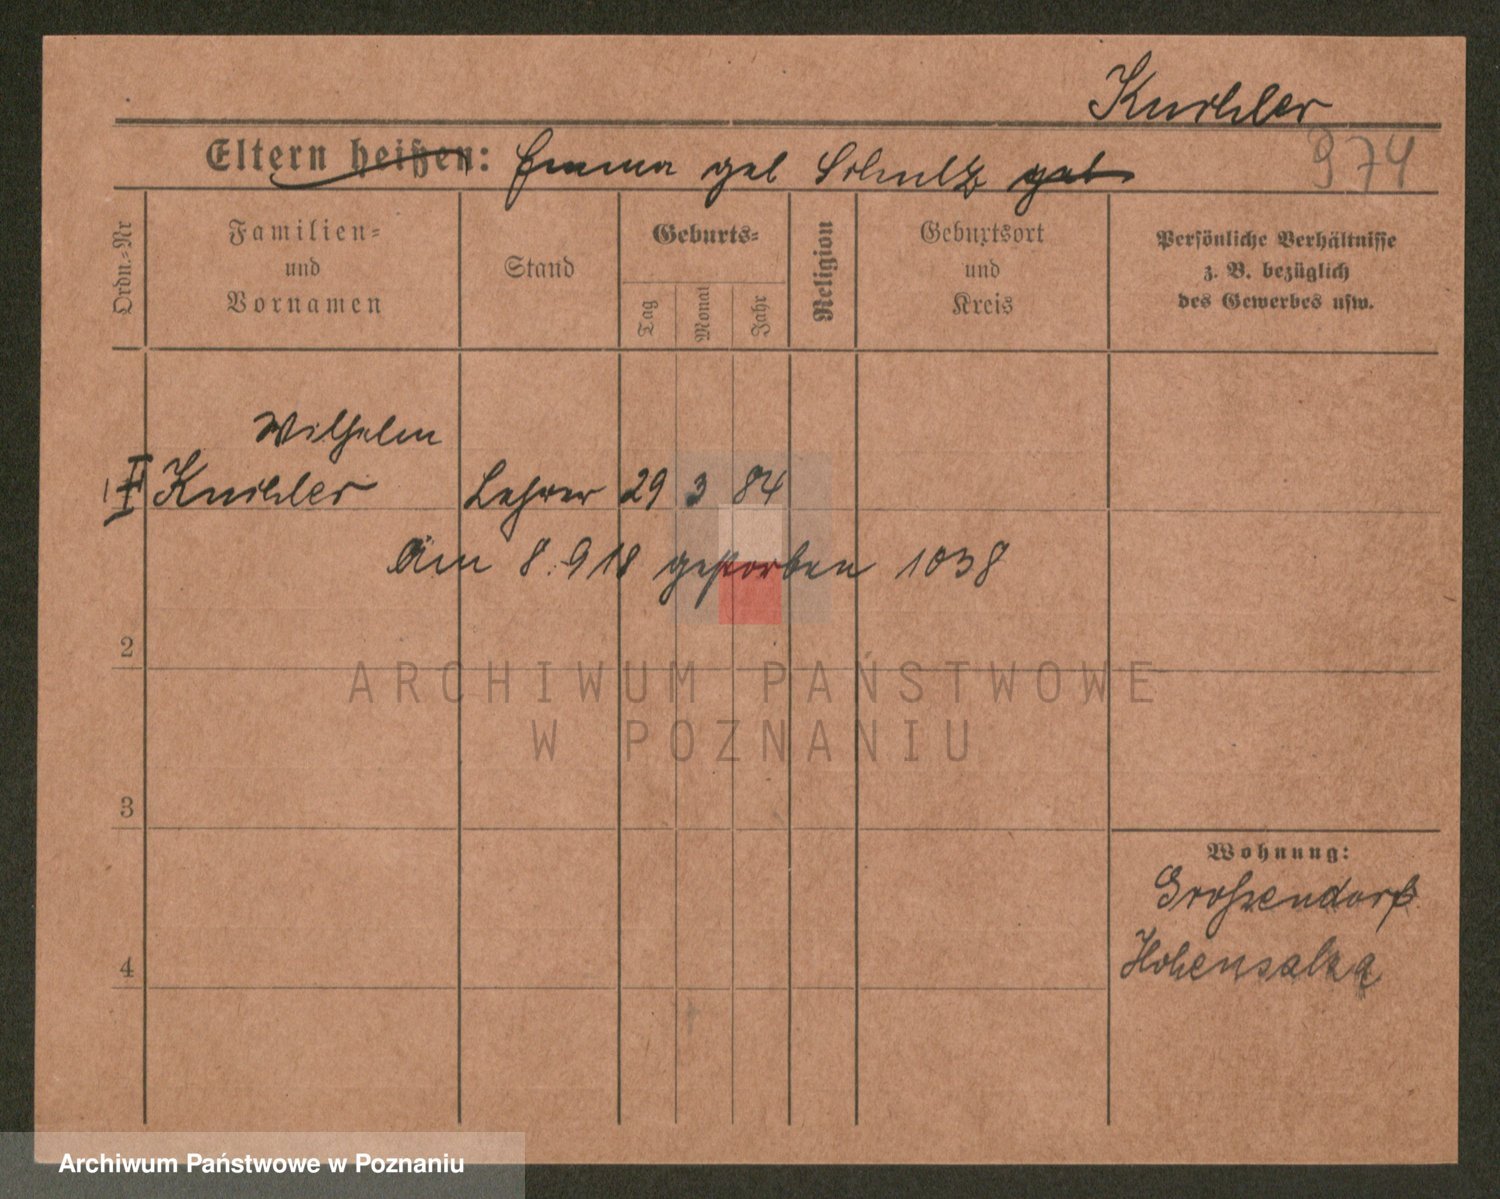 Knihler
Eltern heißen: Emma geb Schultz geb
974
Ordn.-Nr
Familien-
und
Vornamen
Stand
Geburts-
Tag
Monat
Jahr
Religion
Geburtsort
und
Kreis
Persönliche Verhältnisse
z. B. bezüglich
des Gewerbes usw.
Wilhelm
1 Knihler Lehrer 29 3 84
Am 8.918 gestorben 1038
2
3
4
Wohnung:
Großendorf
Hohensalza
ARCHIWUM PAŃSTWOWE
W POZNANIU
Archiwum Państwowe w Poznaniu